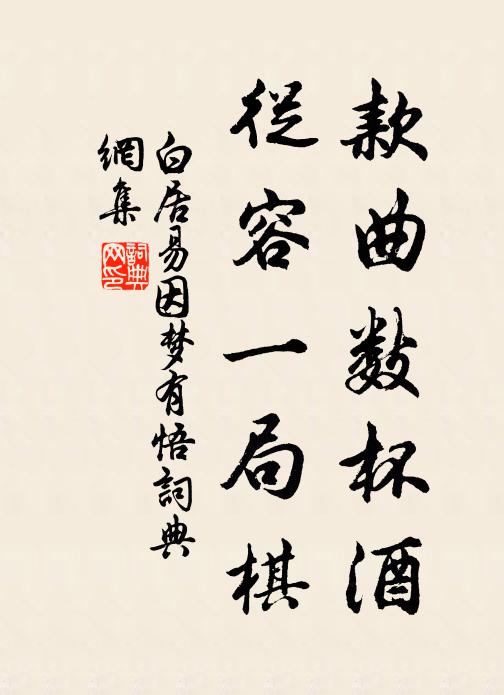 款曲数杯酒
從容一局棋
白居易因梦有悟詞典
網集
詞典网印